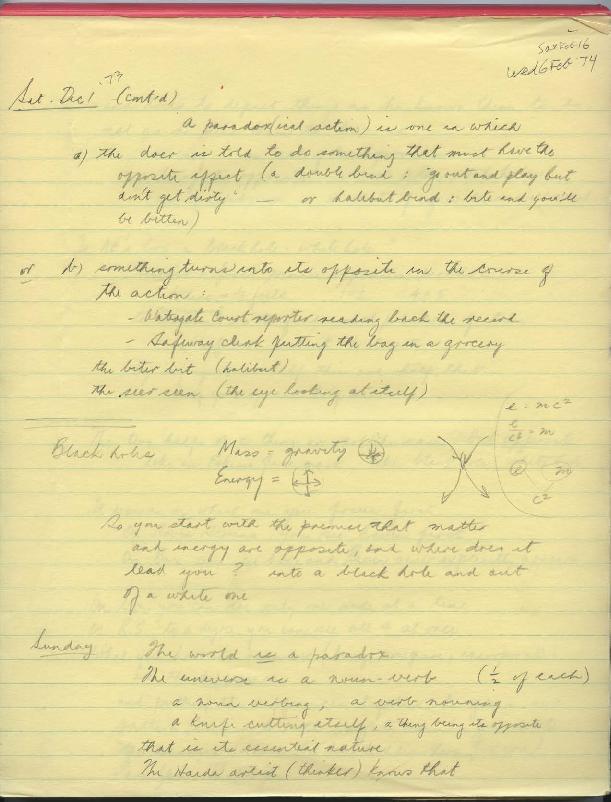 Sat Feb 16
Wed 6 Feb '74
Sat. Dec 1 '73 (cont'd)
A paradox(ical action) is one in which
a) the doer is told to do something that must have the
opposite effect (a double bind : "go out and play but
don't get dirty" — or halibut bind : bite and you'll
be bitten)
or b) something turns into its opposite in the course of
the action :
- Watergate Court reporter reading back the record
- Safeway clerk putting the bag in a grocery
the biter bit (halibut)
the seer seen (the eye looking at itself)
Black holes Mass = gravity
Energy =
e = mc²
e/c² = m
e m
c²
So you start with the premise that matter
and energy are opposite, and where does it
lead you? into a black hole and out
of a white one
Sunday The world is a paradox
The universe is a noun-verb (½ of each)
a noun verbing, a verb nouning
a knife cutting itself, a thing being its opposite
that is its essential nature
The Haida artist (thinker) knows that